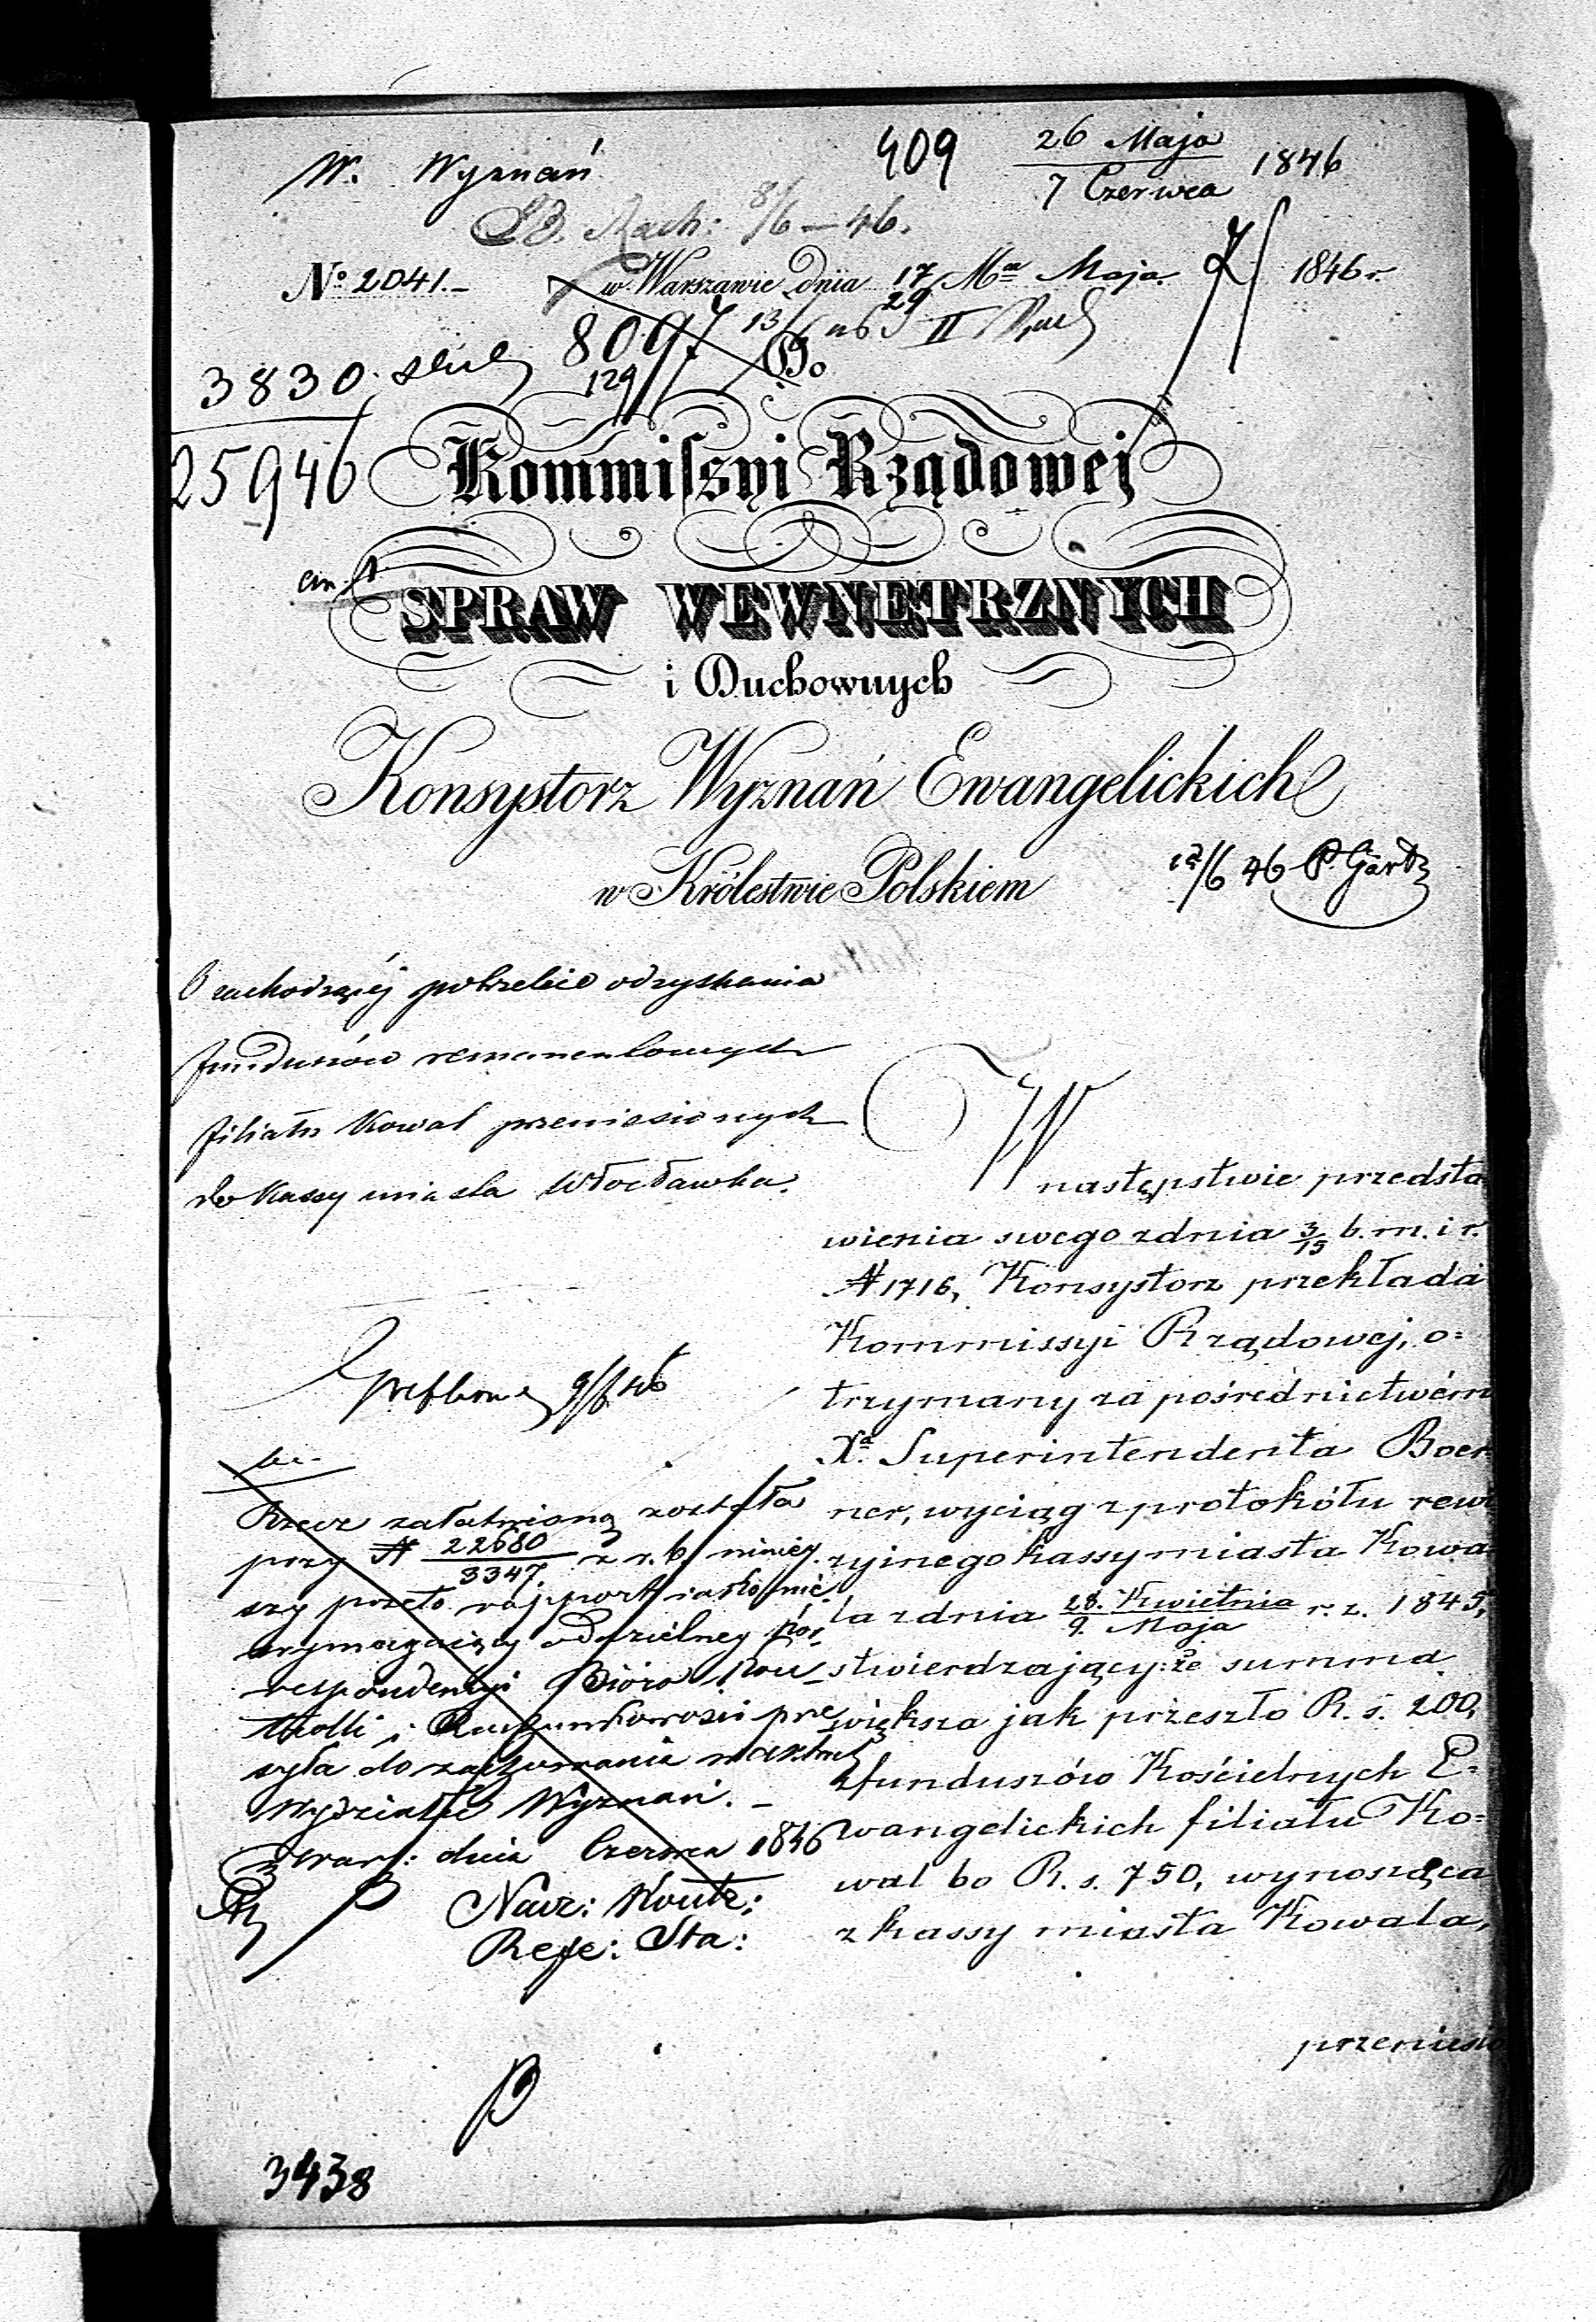 W. Wyznań
409
26 Maja
7 Czerwca
1846
Rach: 8/6 – 46.
No 2041.– w Warszawie dnia 17/29 Ma Maja. 1846 r.
8097 13/6 46 II
129
3830
25946
Do
Kommissyi Rządowej
SPRAW WEWNĘTRZNYCH
i Duchownych
Konsystorz Wyznań Ewangelickich
w Królestwie Polskiem
12/6 46 P. Gärtz
O zachodzącéj potrzebie odzyskania
funduszów remanentowych
filiału Kowal przeniesionych
do Kassy miasta Włocławka.
W
następstwie przedsta
wienia swego z dnia 3/15 b. m. i r.
N 1716, Konsystorz przekłada
Kommissyi Rządowej, o=
trzymany za pośrednictwém
Xa. Superintendenta Boer
ner, wyciąg z protokółu rewi
zyjnego kassy miasta Kowa
la z dnia 28. Kwietnia / 9. Maja r. z. 1845,
stwierdzający: że summa
większa jak przeszło R. s. 200,
z funduszów Kościelnych E=
wangelickich filiału Ko=
wal bo R. s. 750, wynosząca
z kassy miasta Kowala,
przeniesio
9/6 46
Rzecz załatwioną została
przy N 22680/3347 z r. b. niniey
szy przeto rapport iako nie
wymagaiący oddzielney kor
respondencyi Bióro Kon
trolli i Rachunkowości prze
syła do zachowania w aktach
Wydziału Wyznań. –
z Warsz: dnia Czerwca 1846
Nacz: Kontr:
Refe: Sta:
3438